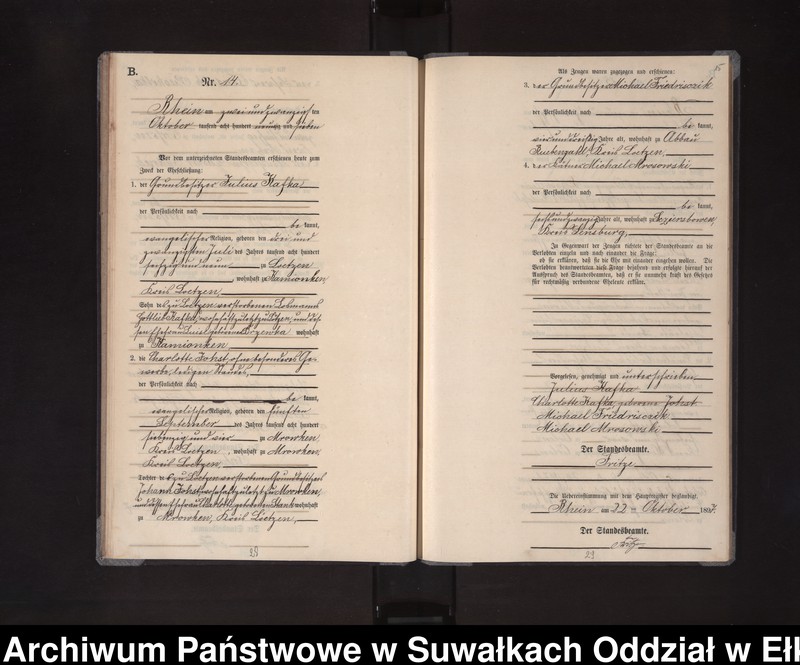 B.
Nr. 14.
Rhein am zwei und zwanzigsten
Oktober tausend acht hundert neunzig und sieben
Vor dem unterzeichneten Standesbeamten erschienen heute zum
Zweck der Eheschließung:
1. der Grundbesitzer Julius Kafka
der Persönlichkeit nach
be kannt,
evangelischer Religion, geboren den drei und
zwanzigsten Juli des Jahres tausend acht hundert
sechzig und neun zu Loetzen
, wohnhaft zu Kamionken
Kreis Loetzen
Sohn des zu Loetzen verstorbenen
Gottlieb Kafka, wohnhaft
wohnhaft
zu Kamionken
2. die Charlotte Johst, ohne besonderes Ge-
werbe, ledigen Standes,
der Persönlichkeit nach
be kannt,
evangelischer Religion, geboren den fünften
September des Jahres tausend acht hundert
siebenzig und vier zu Mrowken,
Kreis Loetzen, wohnhaft zu Mrowken,
Kreis Loetzen
Tochter des zu Loetzen verstorbenen Grundbesitzers
Johann Johst, wohnhaft zuletzt zu Mrowken,
und dessen Ehefrau Charlotte geborenen wohnhaft
zu Mrowken, Kreis Loetzen,
28
Als Zeugen waren zugezogen und erschienen:
3. der Grundbesitzer Michael Friedrisczik
der Persönlichkeit nach
be kannt,
vier und dreißig Jahre alt, wohnhaft zu Abbau
Ruebenzahl, Kreis Loetzen,
4. der Kätner Michael Mrosowski
der Persönlichkeit nach
be kannt,
sechs und zwanzig Jahre alt, wohnhaft zu
Kreis Sensburg,
In Gegenwart der Zeugen richtete der Standesbeamte an die
Verlobten einzeln und nach einander die Frage:
ob sie erklären, daß sie die Ehe mit einander eingehen wollen. Die
Verlobten beantworteten diese Frage bejahend und erfolgte hierauf der
Ausspruch des Standesbeamten, daß er sie nunmehr kraft des Gesetzes
für rechtmäßig verbundene Eheleute erkläre.
Vorgelesen, genehmigt und unterschrieben
Julius Kafka
Charlotte Kafka, geborene Johst
Michael Friedrisczik
Michael Mrosowski
Der Standesbeamte.
Fritze
Die Uebereinstimmung mit dem Hauptregister beglaubigt.
Rhein am 22ten Oktober 1897.
Der Standesbeamte.
29
Archiwum Państwowe w Suwałkach Oddział w Eł